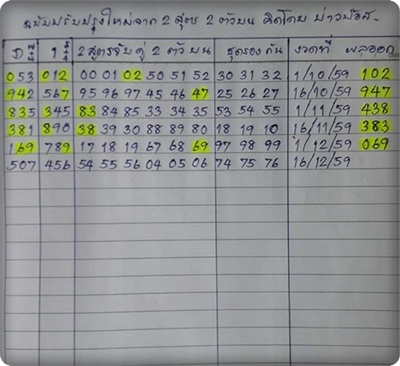 ฉบับปรับปรุงใหม่จาก 2 สูตร 2 ตัวบน คิดโดย
2 สูตรจับคู่ 2 ตัวบน ชุดรองกัน งวดที่ ผลออก
053 012 00 01 02 50 51 52 30 31 32 1/10/59 102
942 567 95 96 97 45 46 47 25 26 27 16/10/59 947
835 345 83 84 85 33 34 35 53 54 55 1/11/59 438
381 890 38 39 30 88 89 80 18 19 10 16/11/59 383
169 789 17 18 19 67 68 69 97 98 99 1/12/59 069
507 456 54 55 56 04 05 06 74 75 76 16/12/59